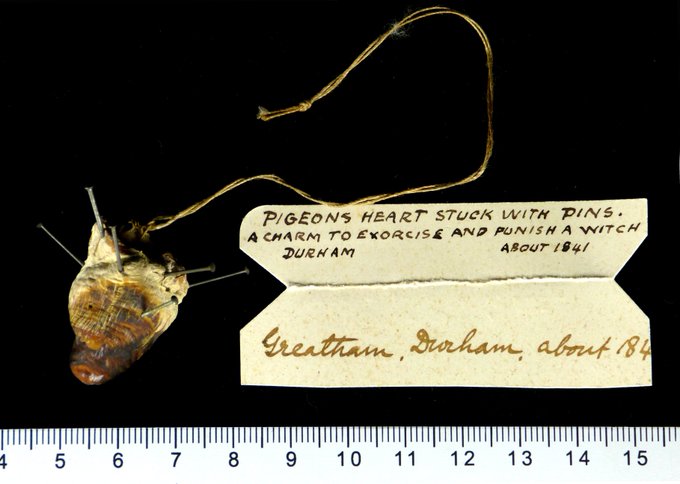 PIGEONS HEART STUCK WITH PINS.
A CHARM TO EXORCISE AND PUNISH A WITCH
DURHAM ABOUT 1841
Greatham, Durham, about 184
4 5 6 7 8 9 10 11 12 13 14 15